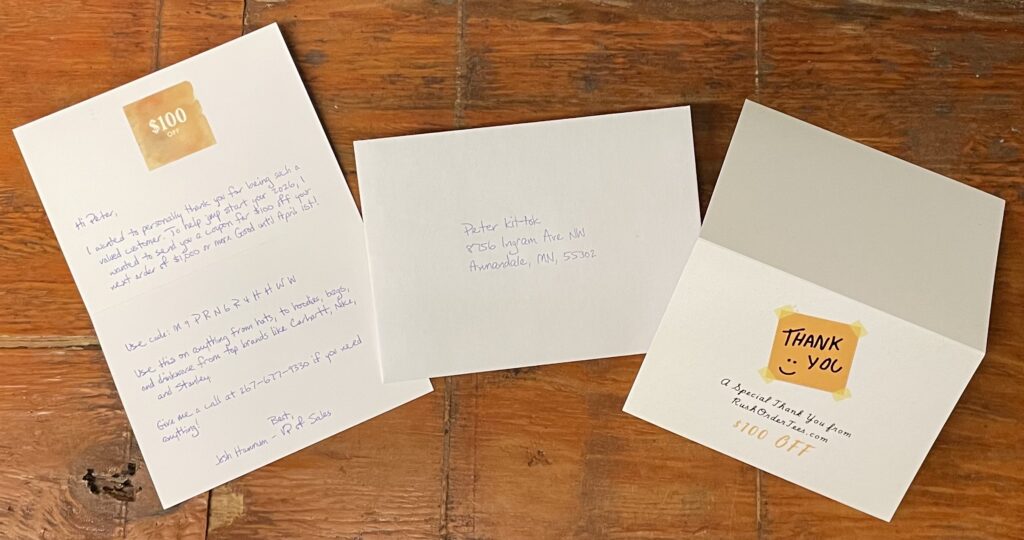 $100
OFF
Hi Peter,
I wanted to personally thank you for being such a
valued customer. To help jump start your 2026, I
wanted to send you a coupon for $100 off your
next order of $1,500 or more. Good until April 1st!
Use code: M9PRN6R4HHWW
Use this on anything from hats, to hoodies, bags,
and drinkware from top brands like Carhartt, Nike,
and Stanley.
Give me a call at 267-677-9330 if you need
anything!
Best,
Josh Hannum - VP of Sales
Peter Kittok
8756 Ingram Ave NW
Annandale, MN, 55302
THANK
YOU
A Special Thank You from
RushOrderTees.com
$100 OFF